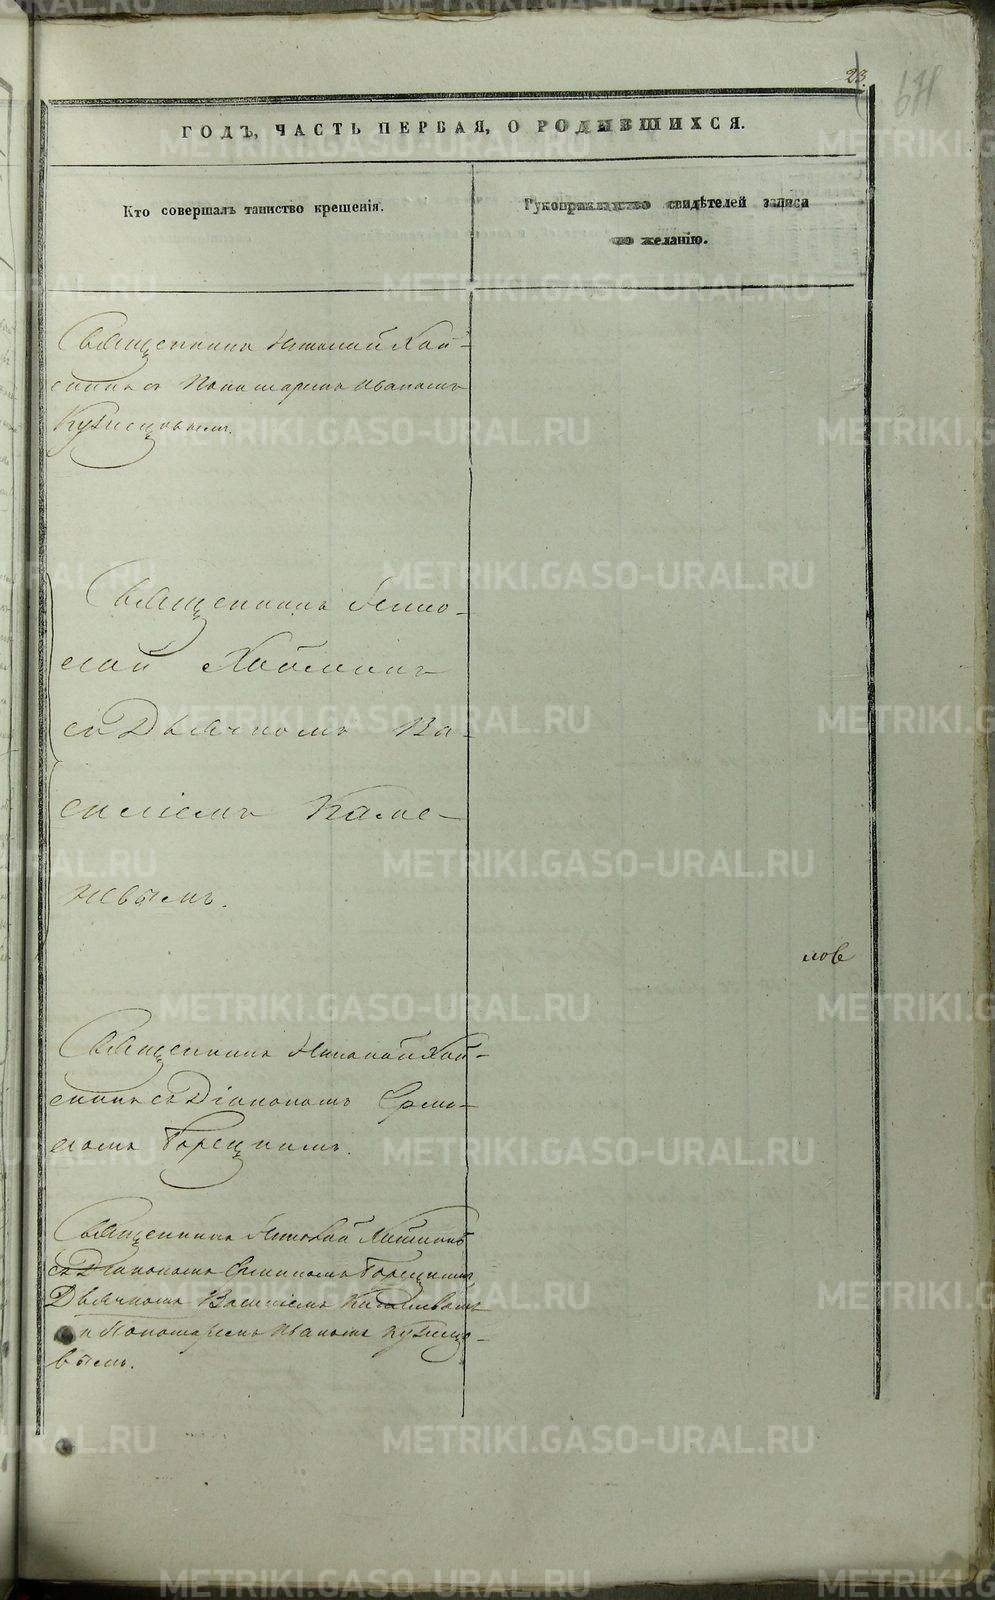 23.
ГОДЪ, ЧАСТЬ ПЕРВАЯ, О РОДИВШИХСЯ.
Кто совершалъ таинство крещенія.
Рукоприкладство свидѣтелей записи
по желанію.
Священникъ Николай Хой-
съ Пономаремъ Иваномъ
Кузнецовымъ.
Священникъ Нико-
лай
съ Дьячкомъ Ва-
силіемъ Каме-
невымъ.
лов
Священникъ Николай Хой-
съ Діакономъ
Горецкимъ.
Священникъ Николай
съ Діакономъ Горецкимъ
Дьячкомъ Василіемъ
и Пономаремъ Иваномъ Кузнецо-
вымъ.
METRIKI.GASO-URAL.RU